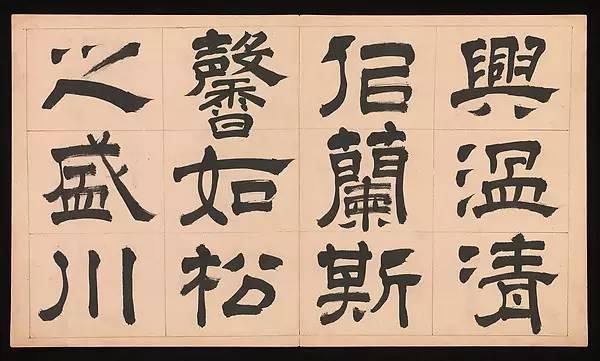 興溫清
佀蘭斯
馨如松
之盛川